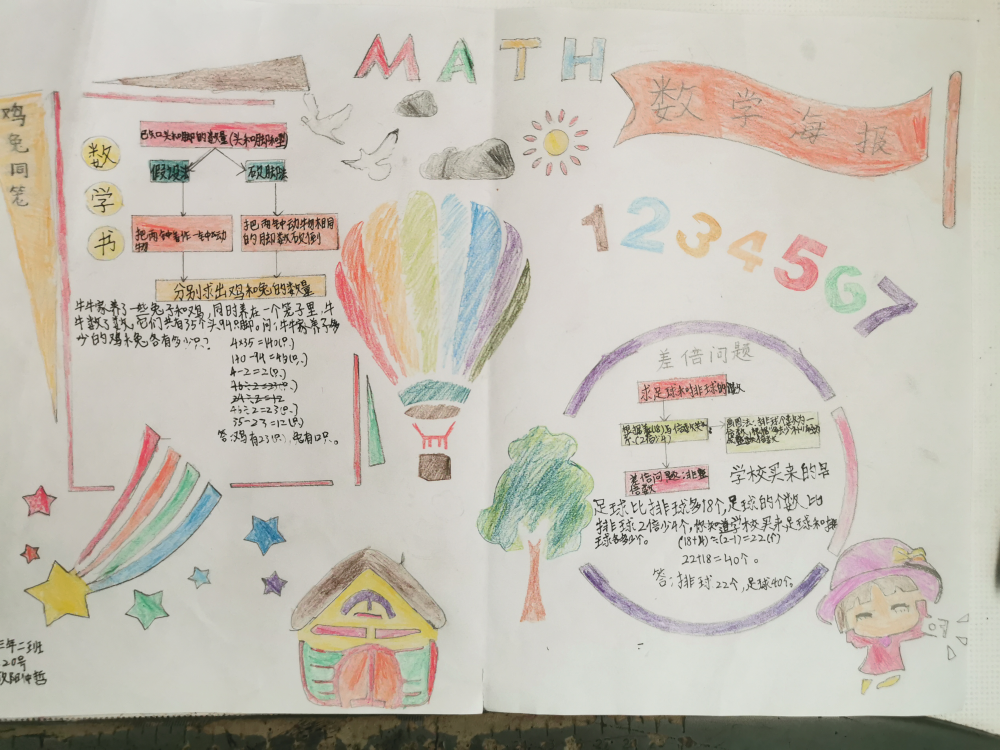 MATH
数学海报
鸡兔同笼
数学书
已知头和脚的数量(头和脚和型)
假设法
砍脚法
把两种看作一种动物
把两种动物相同的脚数砍倒
分别求出鸡和兔的数量
牛牛家养了一些兔子和鸡,同时养在一个笼子里,牛
牛数了数,它们共有35个头,94只脚。问:牛牛家养了多
少的鸡和兔各有多少只?
4×35=140(只)
140-94=46(只)
4-2=2(只)
46÷2=23(只)
35-23=12(只)
答:鸡有23只,兔有12只。
1234567
差倍问题
求足球和排球的个数
差倍问题:非整倍数
学校买来的吕
足球比排球多18个,足球的个数比
排球2倍少4个,你知道学校买来足球和排
球多少个。
(18+4)÷(2-1)=22(个)
22+18=40个。
答:排球22个,足球40个
三年二班
20号